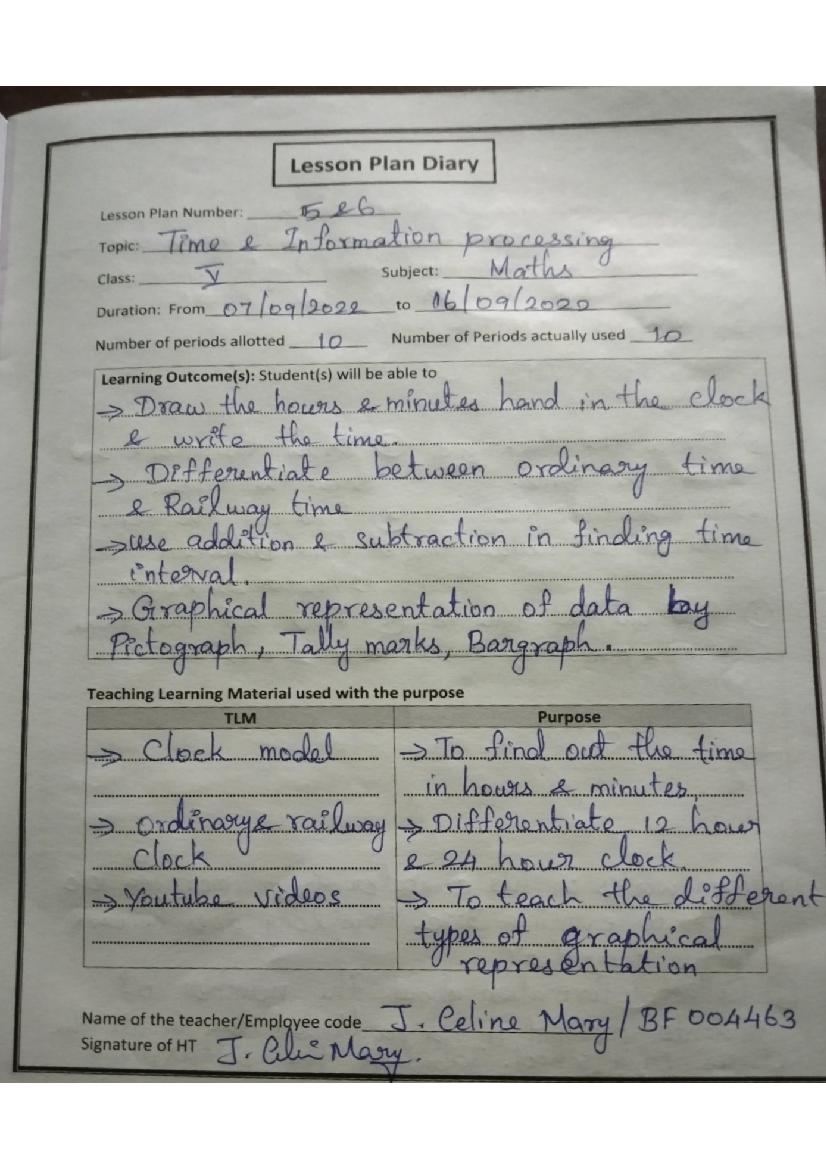 Lesson Plan Diary
Lesson Plan Number: 5 & 6
Topic: Time & Information processing
Class: V Subject: Maths
Duration: From 07/09/2022 to 16/09/2020
Number of periods allotted 10 Number of Periods actually used 10
Learning Outcome(s): Student(s) will be able to
→ Draw the hours & minutes hand in the clock
& write the time.
→ Differentiate between ordinary time
& Railway time
→ use addition & subtraction in finding time
interval.
→ Graphical representation of data by
Pictograph, Tally marks, Bargraph.
Teaching Learning Material used with the purpose
TLM Purpose
→ Clock model → To find out the time
in hours & minutes,
→ Ordinary & railway → Differentiate 12 hour
Clock & 24 hour clock
→ Youtube videos → To teach the different
types of graphical
representation
Name of the teacher/Employee code J. Celine Mary / BF 004463
Signature of HT J. Celin Mary.